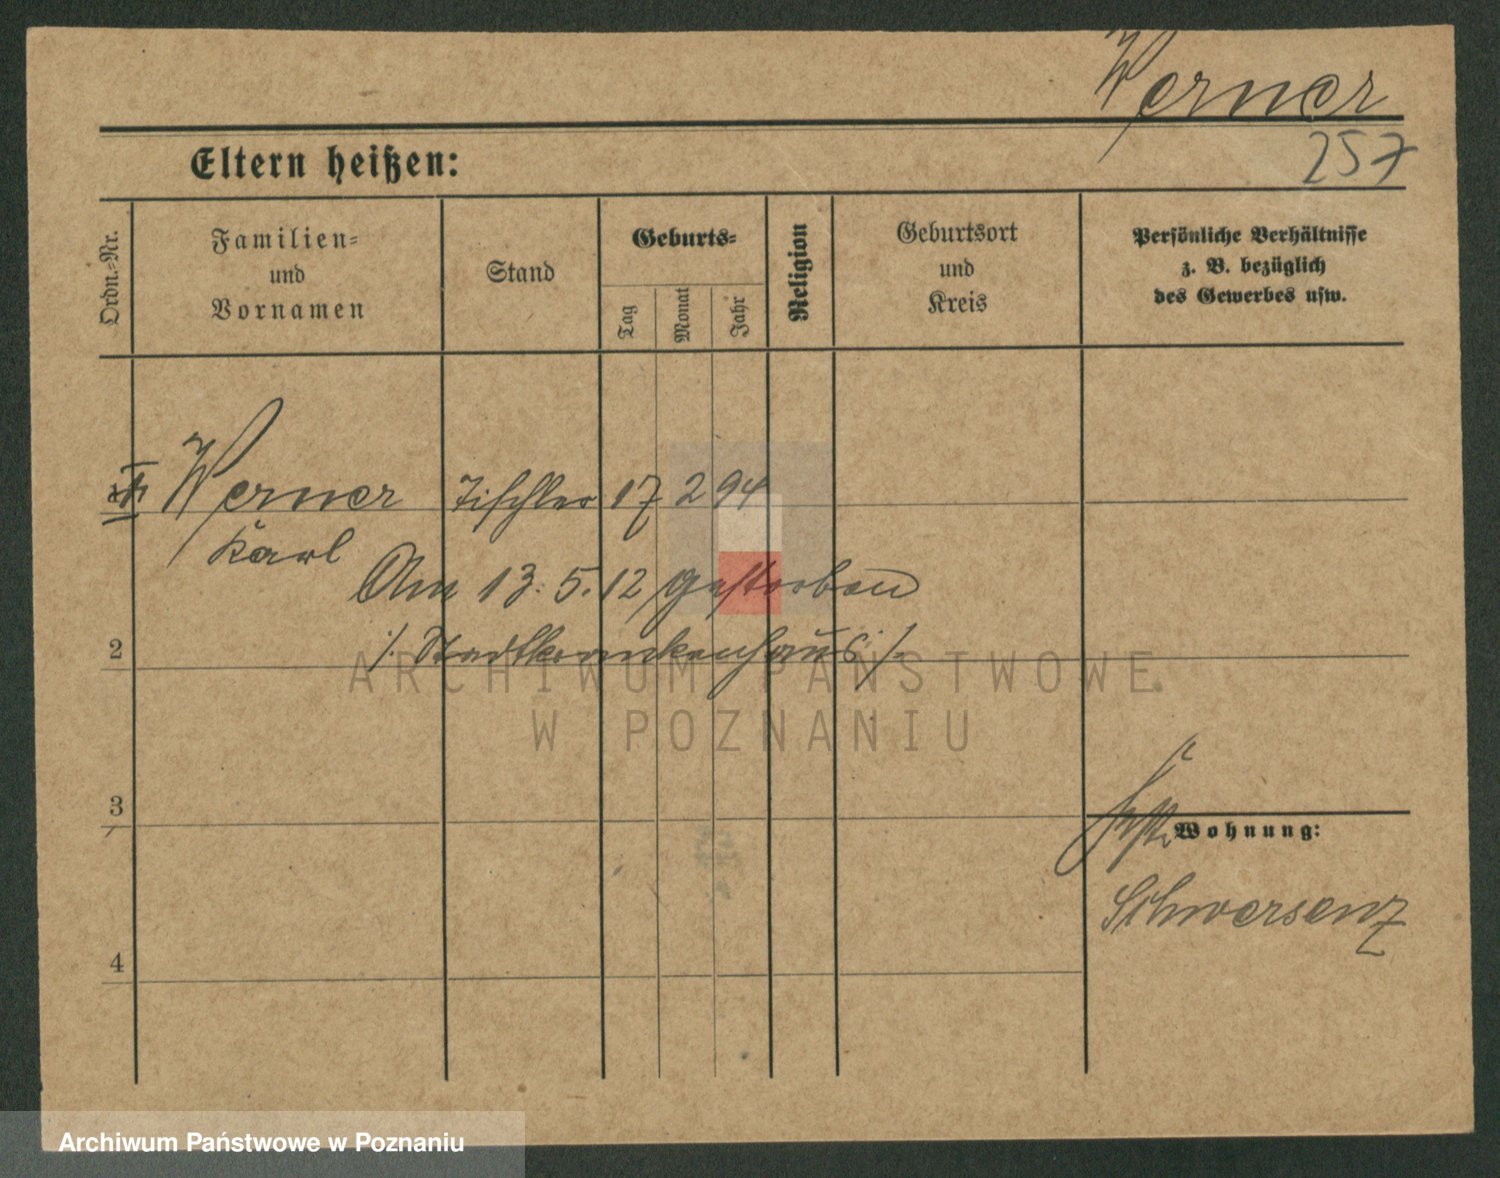 Werner
257
Eltern heißen:
Ordn.-Nr.
Familien-
und
Vornamen
Stand
Geburts-
Tag
Monat
Jahr
Religion
Geburtsort
und
Kreis
Persönliche Verhältnisse
z. B. bezüglich
des Gewerbes usw.
Werner Tischler 17 2 94
Karl
Am 13. 5. 12 gestorben
2 /. Stadtkrankenhaus ./.
ARCHIWUM PAŃSTWOWE
W POZNANIU
3
Wohnung:
Schwersenz
4
Archiwum Państwowe w Poznaniu